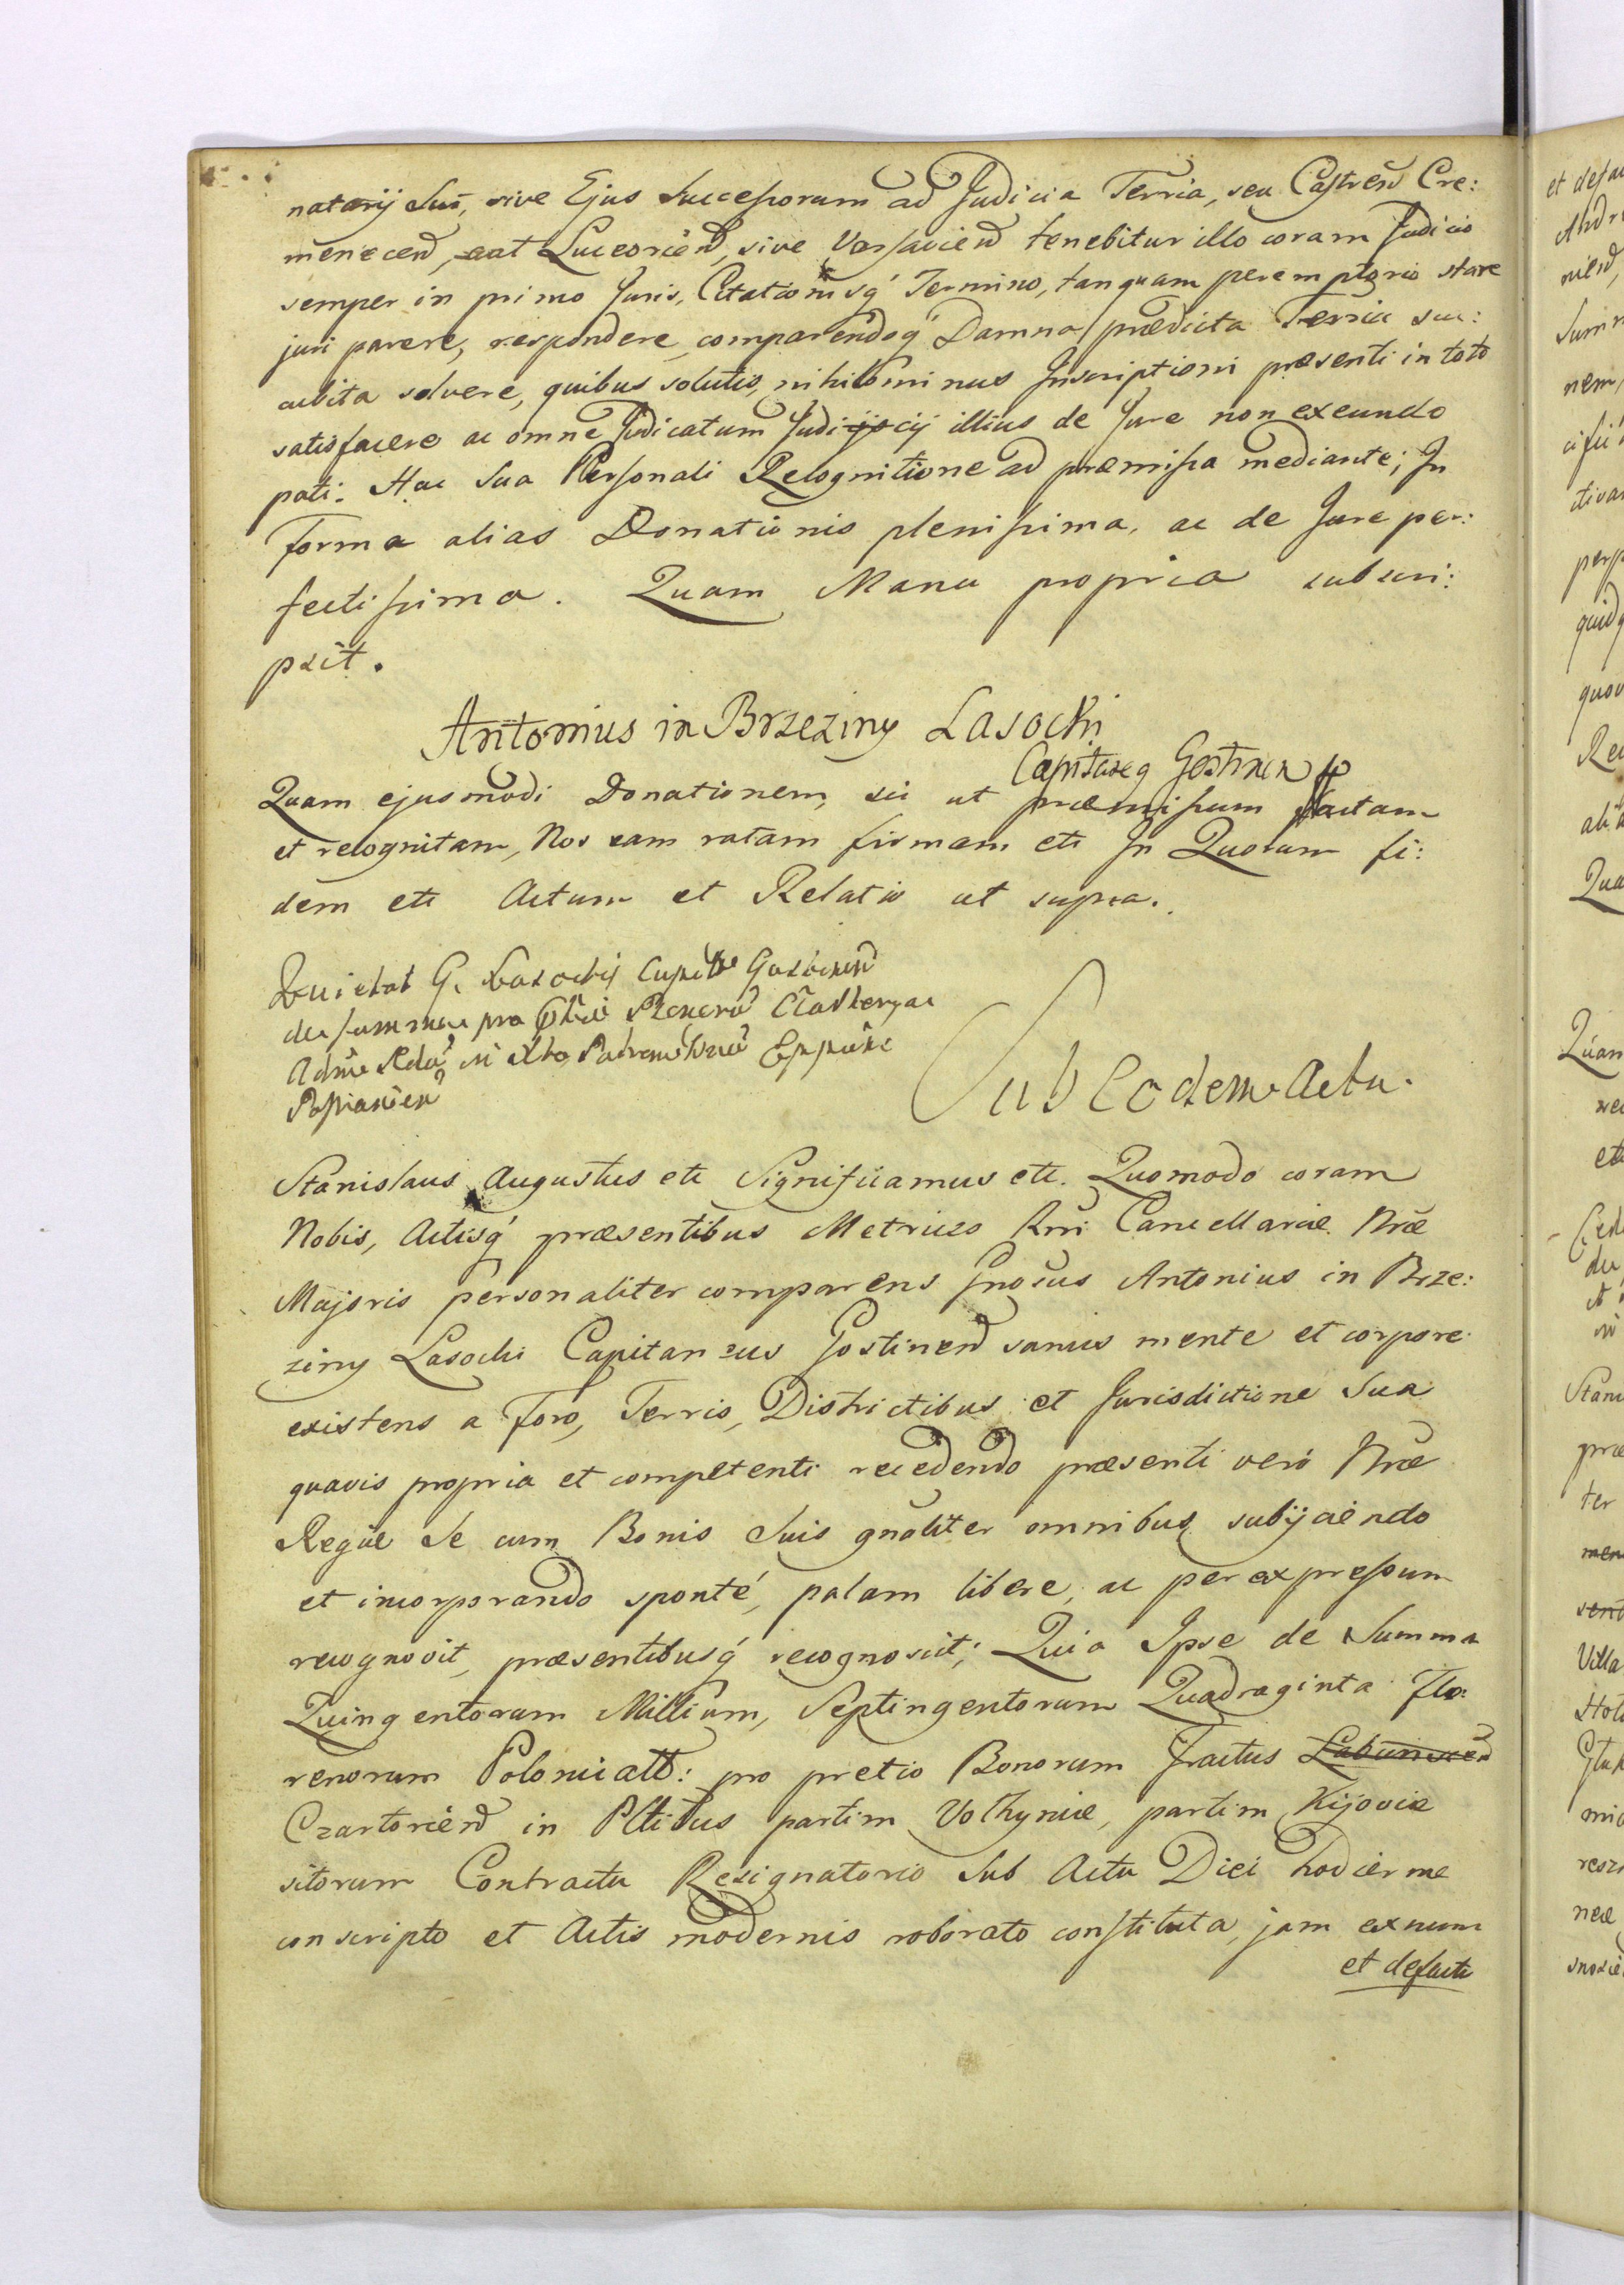 natarij Sui, sive Ejus Successorum ad Judicia Terria, seu Castren Cre:
menecen, aut Luceorien, sive Varsavien tenebitur illo coram Judicio
semper in primo Juris, Citationisq́ Termino, tanquam peremptorio stare
juri parere, respondere, comparendoq́ Damna prædicta Terria suc:
cubita solvere, quibus solutis, nihilominus Inscriptioni præsenti in toto
satisfacere ac omne Judicatum Judicij illius de Jure non exeundo
pati. Hac Sua Personali Recognitione ad præmissa mediante; In
Forma alias Donationis plenissima, ac de Jure per:
fectissima. Quam Manu propria subscri:
psit.
Antonius in Brzeziny Lasocki
Capitaneq Gostinen
Quam ejusmodi Donationem, sic ut præmissum factam
et recognitam, Nos eam ratam firmam etc In Quorum fi:
dem etc Actum et Relatio ut supra.
Quietat G. Lasockij Capit Gostinen
de summa pro
Posnanien
Sub Eodem Actu.
Stanislaus Augustus etc Significamus etc. Quomodo coram
Nobis, Actisq́ præsentibus Metrices Rni Cancellariæ Nræ
Majoris personaliter comparens Gnosus Antonius in Brze:
ziny Lasocki Capitaneus Gostinen sanus mente et corpore
existens a Foro, Terris, Districtibus et Jurisdictione Sua
quavis propria et competenti recedendo præsenti veró Nræ
Regiæ Se cum Bonis Suis gnaliter omnibus subijciendo
et incorporando sponté, palam libere, ac per expressum
recognovit, præsentibusq́ recognoscit; Quia Ipse de Summa
Quingentorum Millium, Septingentorum Quadraginta Flo:
renorum Polonicall: pro pretio Bonorum Tractus Labunscen
Czartorien in Pltibus partim Volhyniæ, partim Kijoviæ
sitorum Contractu Resignatorio Sub Actu Diei hodiernæ
conscripto et Actis modernis roborato constituta, jam ex nunc
et defacto